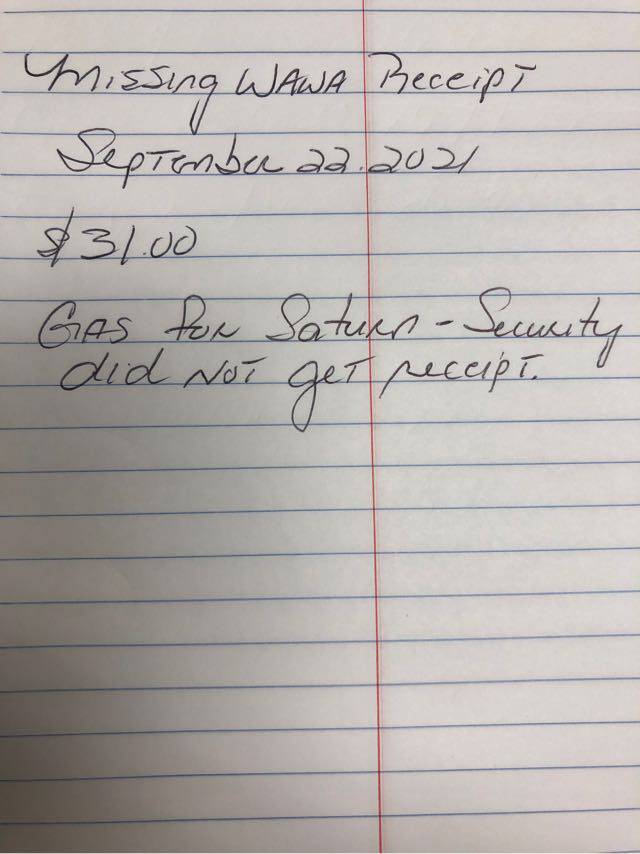 Missing WAWA Receipt
September 22.2021
$31.00
Gas for Saturn - Security
did not get receipt.